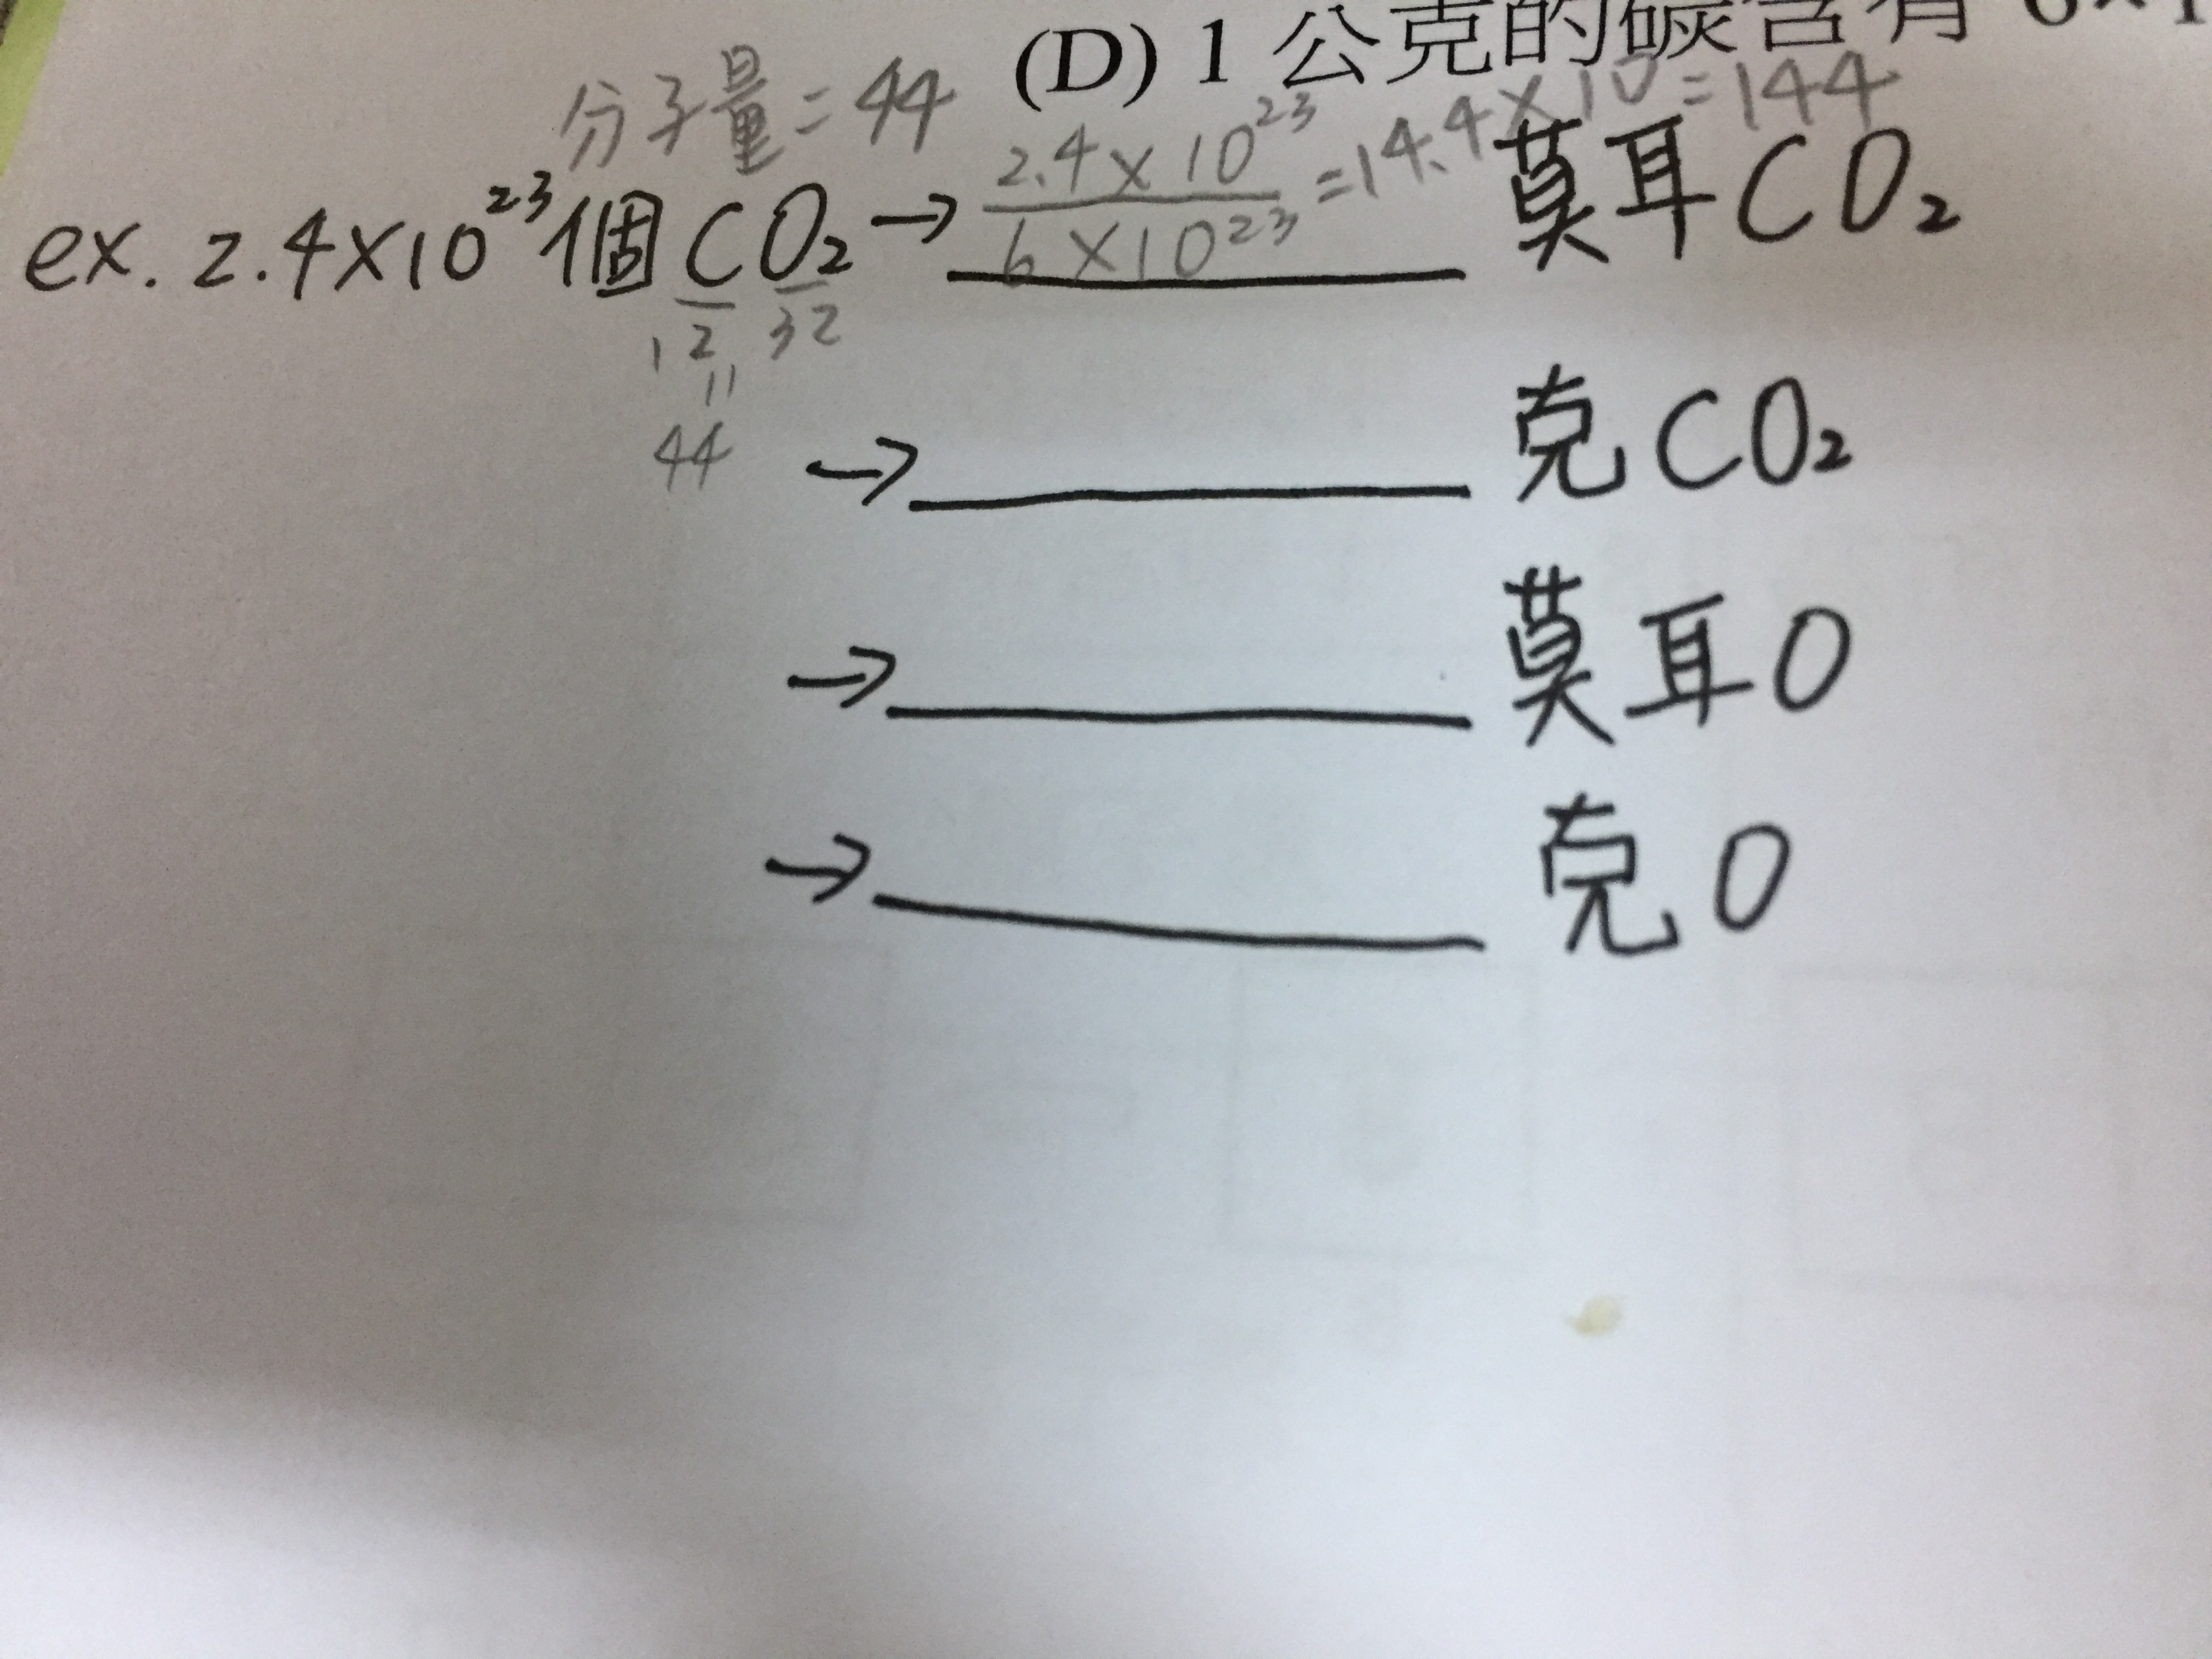 (D) 1 公克的碳含有 6×1
分子量=44
ex. 2.4×10²³個CO₂→ 2.4×10²³/6×10²³ =14.4×10=144 莫耳CO₂
12 32
॥
44 → 克CO₂
→ 莫耳O
→ 克O